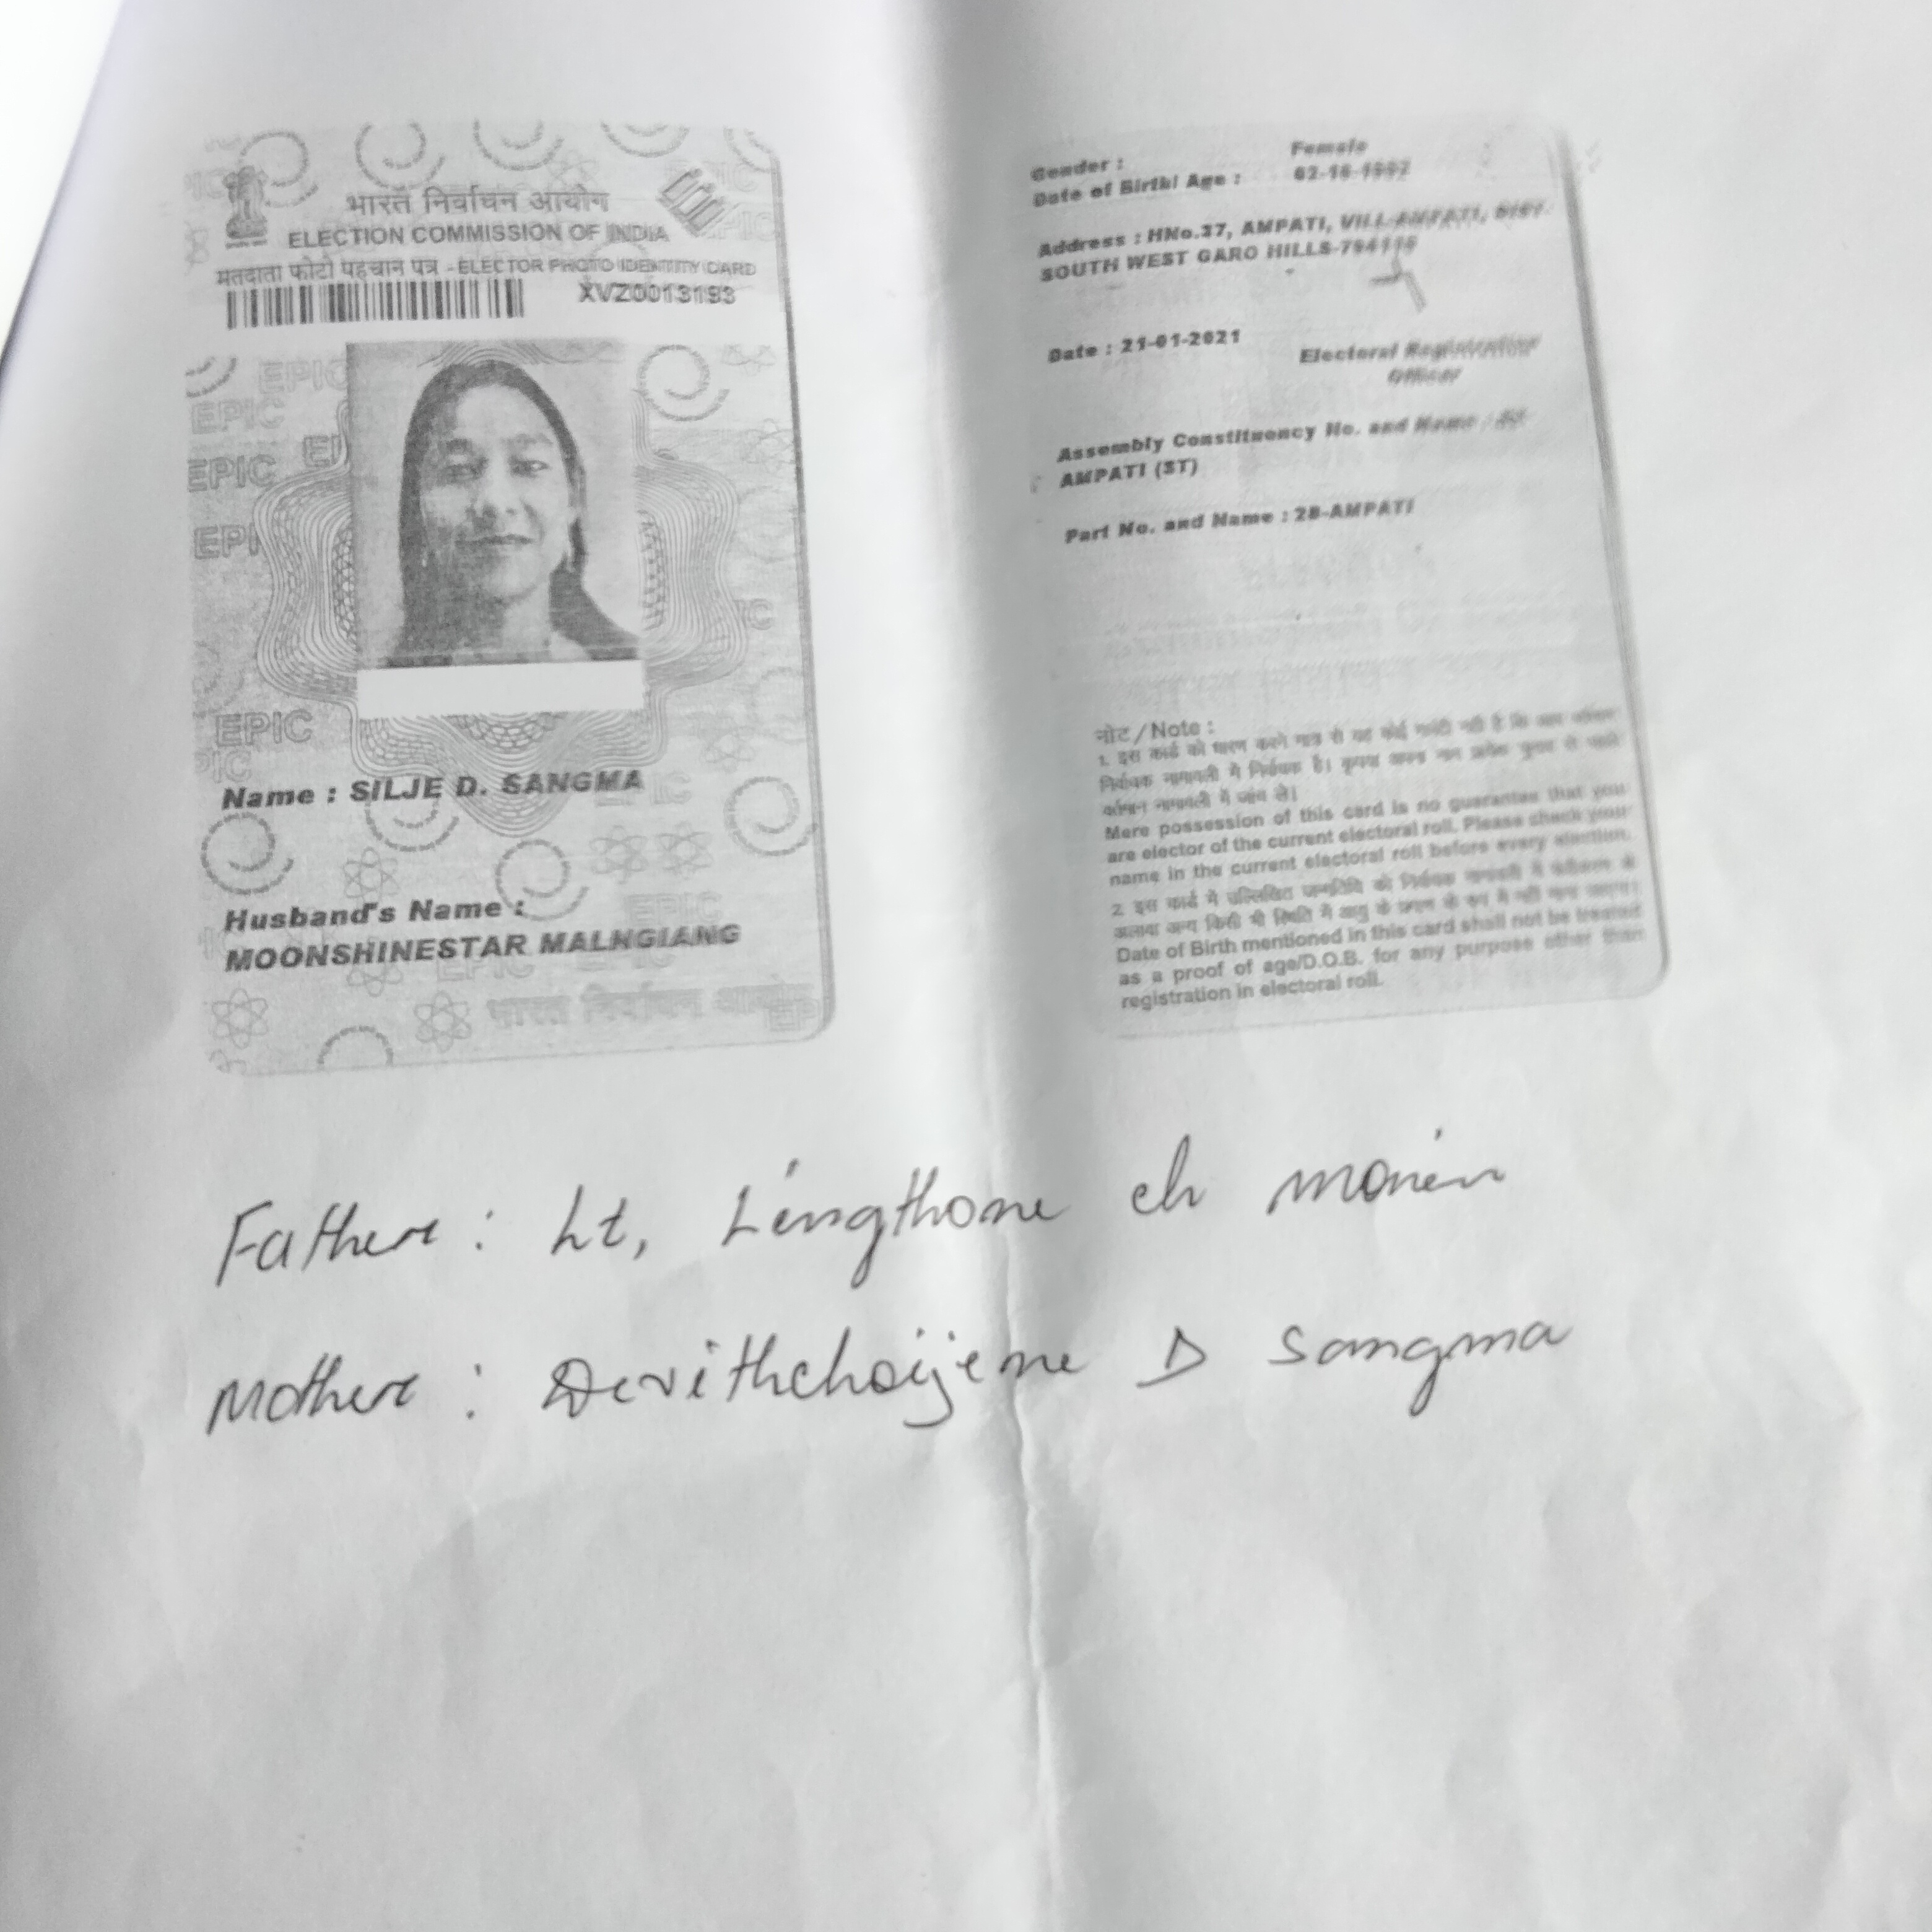 भारत निर्वाचन आयोग
ELECTION COMMISSION OF INDIA
मतदाता फोटो पहचान पत्र - ELECTOR PHOTO IDENTITY CARD
XVZ0013193
EPIC
EPIC
EPIC
EPIC
Name : SILJE D. SANGMA
Husband's Name :
MOONSHINESTAR MALNGIANG
भारत निर्वाचन आयोग
Gender : Female
Date of Birth/ Age :
Address : HNo.37, AMPATI, VILL-AMPATI, DIST-
SOUTH WEST GARO HILLS-794115
Date : 21-01-2021
Electoral Registration
Officer
Assembly Constituency No. and Name :
AMPATI (ST)
Part No. and Name : 28-AMPATI
नोट/Note :
1. इस कार्ड को धारण करने मात्र से यह कोई गारंटी नहीं है कि आप वर्तमान
निर्वाचक नामावली में निर्वाचक हैं। कृपया अपना नाम प्रत्येक चुनाव से पहले
वर्तमान नामावली में जांच लें।
Mere possession of this card is no guarantee that you
are elector of the current electoral roll. Please check your
name in the current electoral roll before every election.
2. इस कार्ड में उल्लिखित जन्मतिथि को निर्वाचक नामावली में पंजीकरण के
अलावा अन्य किसी भी स्थिति में आयु के प्रमाण के रूप में नहीं माना जाएगा।
Date of Birth mentioned in this card shall not be treated
as a proof of age/D.O.B. for any purpose other than
registration in electoral roll.
Father : Lt, Lingthone ch
Mother : Devithchoijene D Sangma